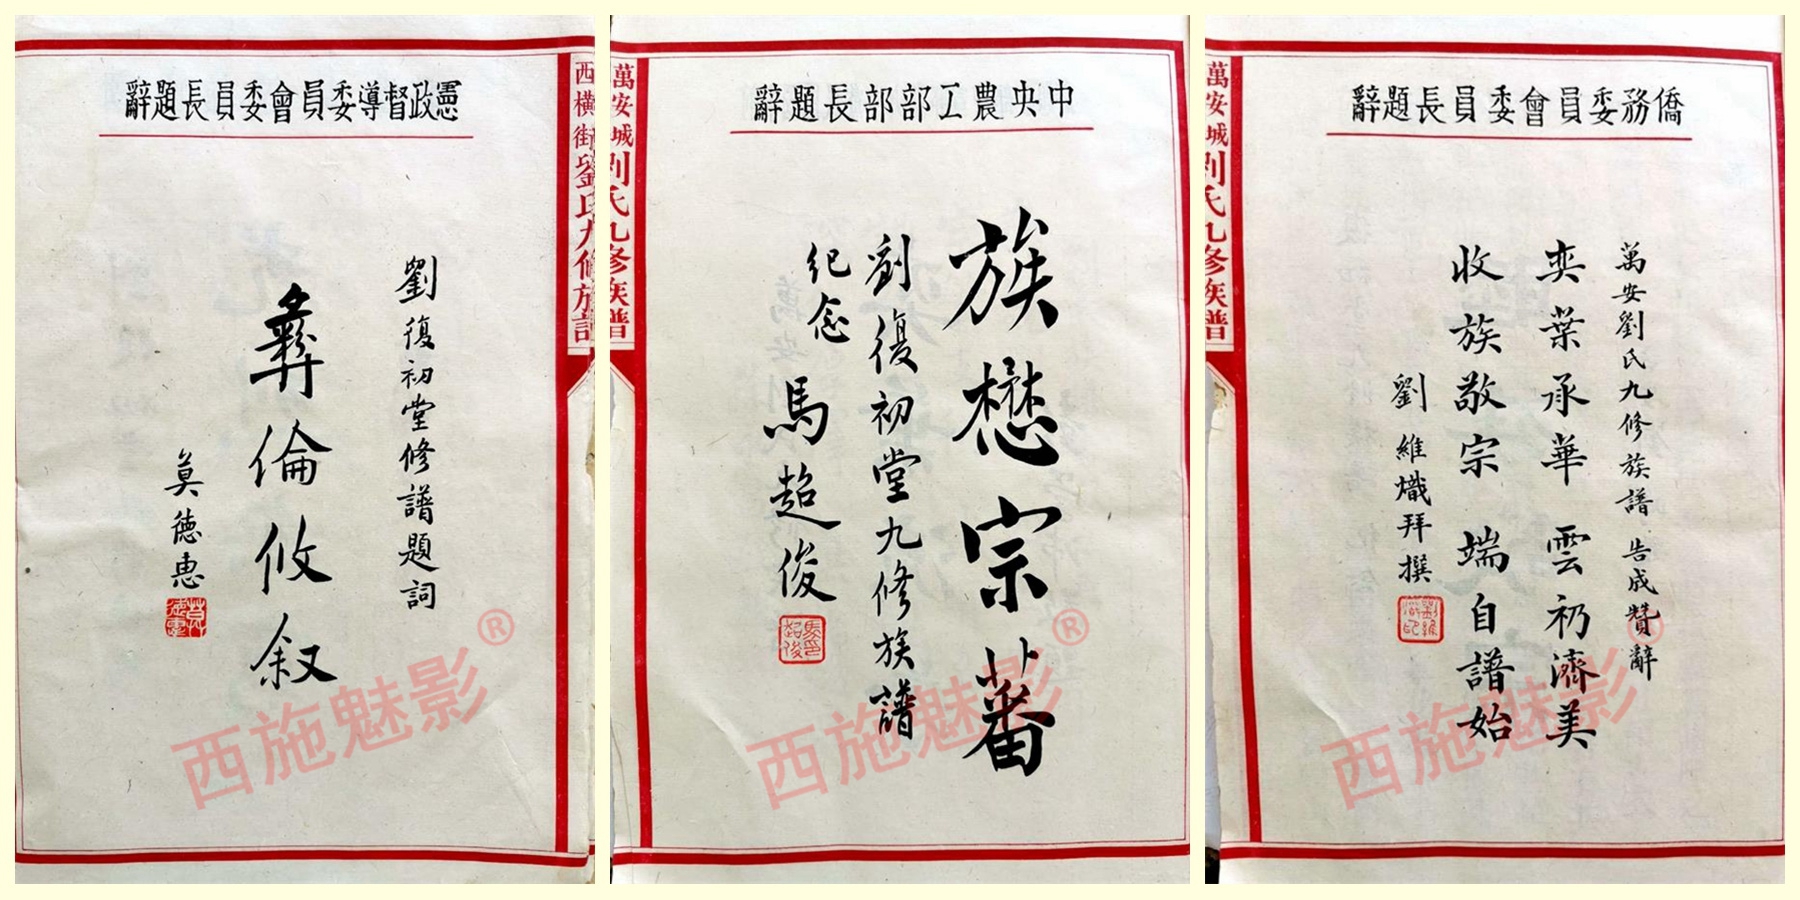 憲政督導委員會委員長題辭
劉復初堂修譜題詞
彝倫攸叙
莫德惠
莫德惠
西橫街劉氏九修族譜
西施魅影®
中央農工部部長題辭
族懋宗蕃
劉復初堂九修族譜
纪念
馬超俊
馬超俊印
萬安城劉氏九修族譜
西施魅影®
僑務委員會委員長題辭
萬安劉氏九修族譜告成贊辭
奕葉承華 雲礽濟美
收族敬宗 端自譜始
劉維熾拜撰
劉維熾印
萬安城劉氏九修族譜
西施魅影®